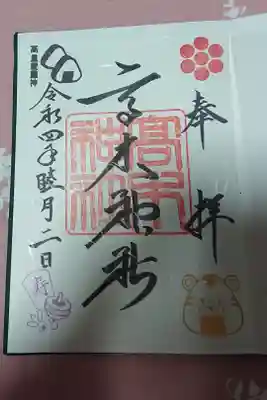 奉拝
高木神社
高木神社
令和四年睦月二日
高皇産靈神